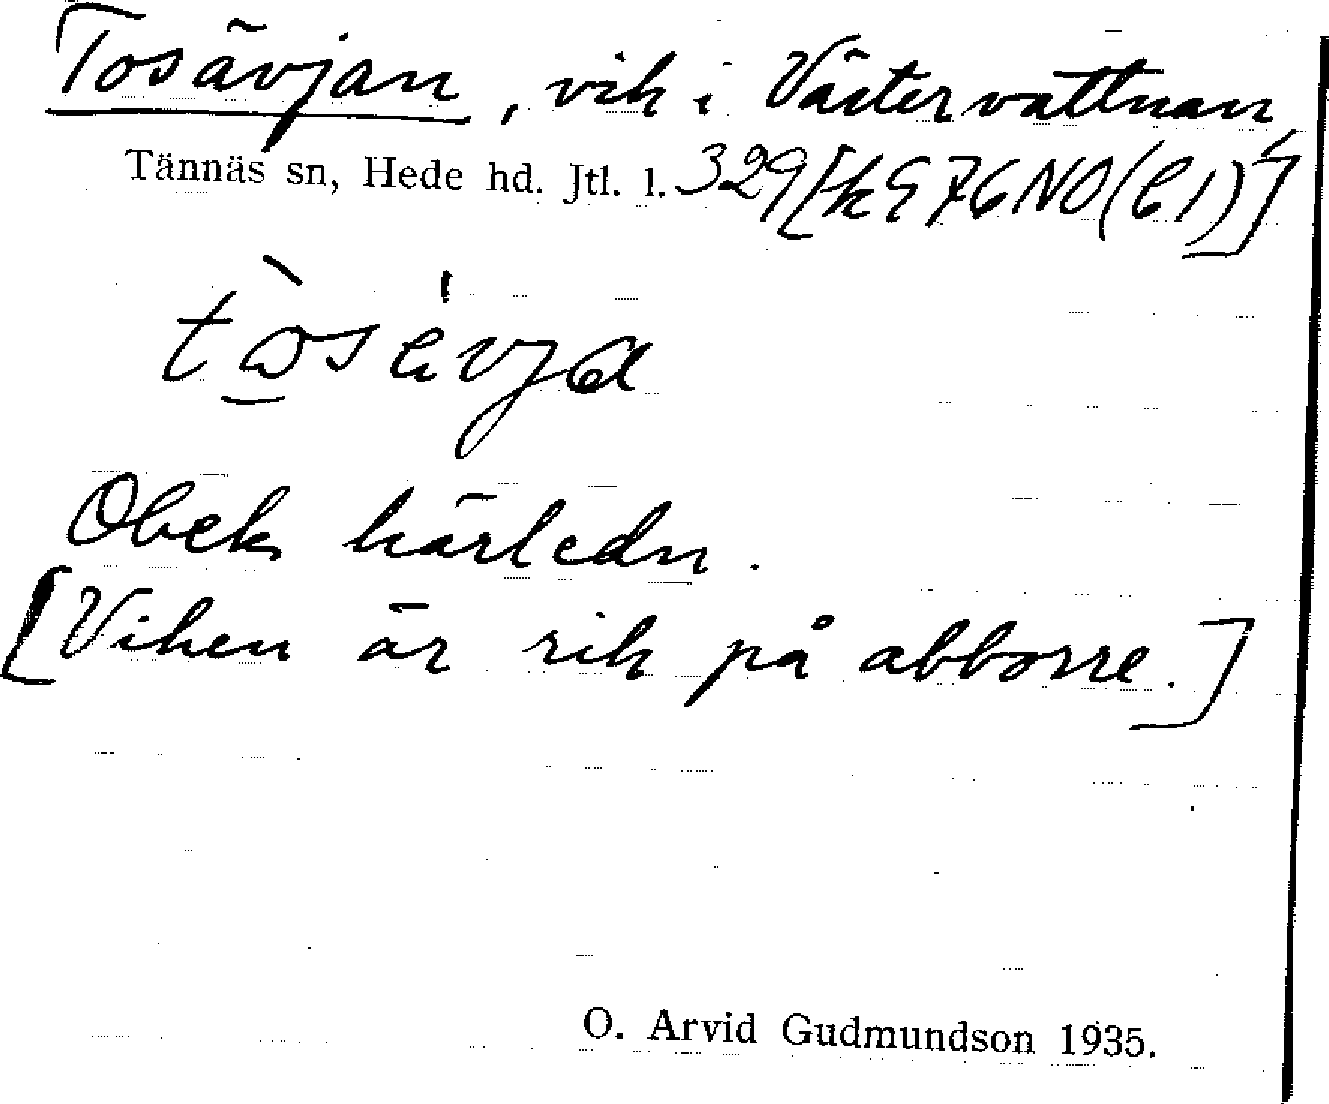 Tosävjan, vik i Västervattnan,
Tännäs sn, Hede hd. Jtl. l. 329 [k976NO(C1)]
Obek härledn.
[Viken är rik på abborre.]
O. Arvid Gudmundson 1935.